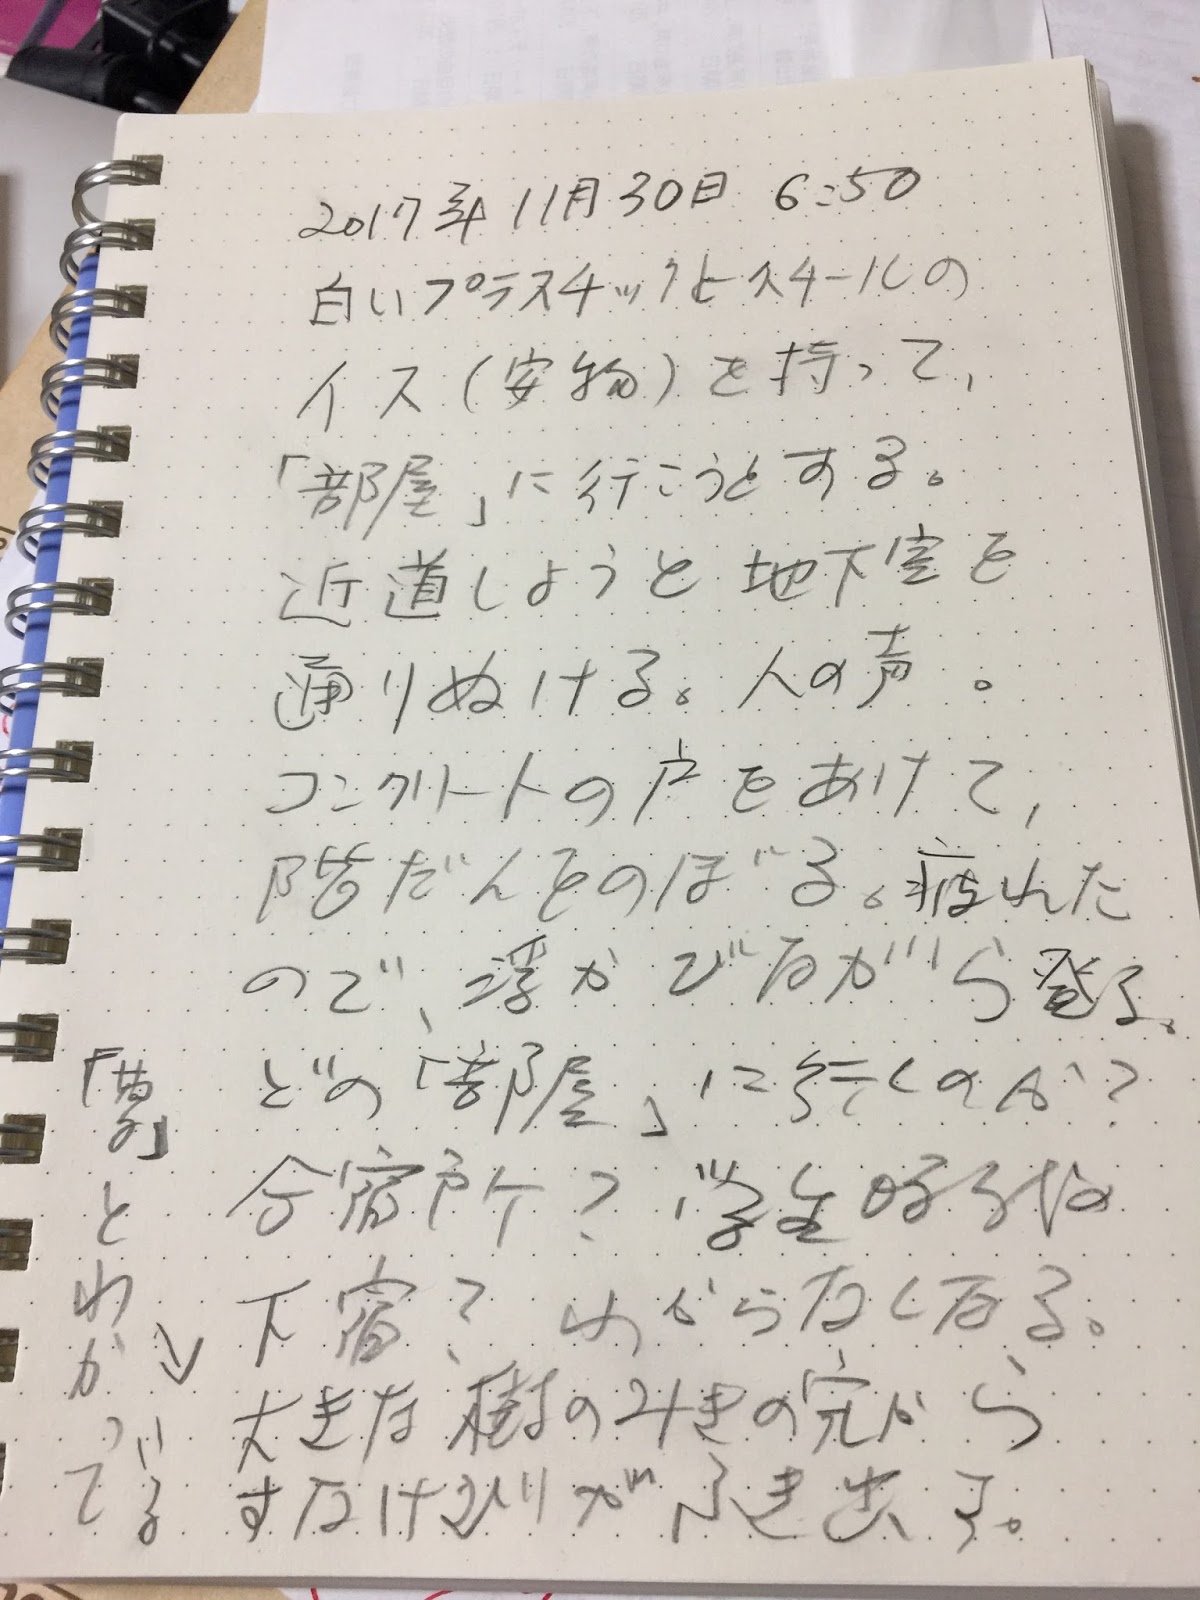 2017年11月30日 6:50
白いプラスチックとスチールの
イス(安物)を持って、
「部屋」に行こうとする。
近道しようと地下室を
通りぬける。人の声。
コンクリートの戸をあけて、
階だんをのぼる。疲れた
ので、浮かびながら登る。
どの「部屋」に行くのか?
合宿所?学生時代の
下宿?わからなくなる。
大きな樹のみきの穴から
すなけむりがふき出る。
「夢」
とわかっ
てる